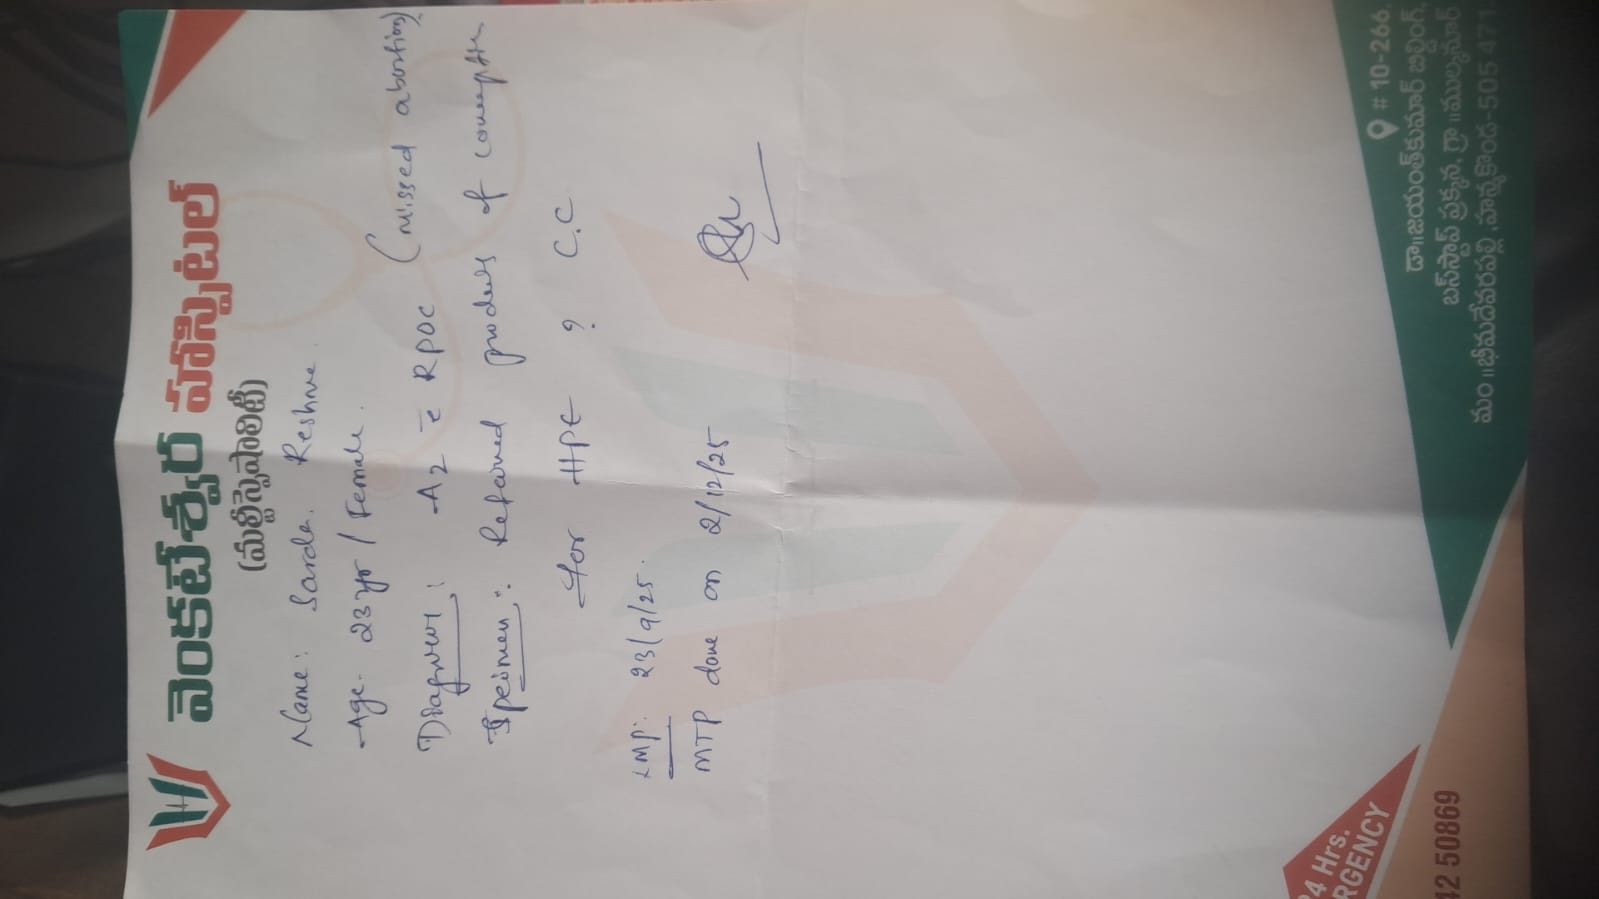 వెంకటేశ్వర హాస్పిటల్
(మల్టీస్పెషాలిటీ)
Name: Sarda. Reshma.
Age- 23 yr / Female.
Diagnosis: A2 c̄ RPOC (missed abortion)
Specimen: Retained products of conception
for HPE ? C.C
LMP: 23/9/25.
MTP done on 2/12/25
24 Hrs.
RGENCY
42 50869
# 10-266,
డా॥జయంత్‌కుమార్ బిల్డింగ్,
బస్‌స్టాప్ ప్రక్కన, గ్రా॥ముల్కనూర్
మం॥భీమదేవరపల్లి, హన్మకొండ-505 471.